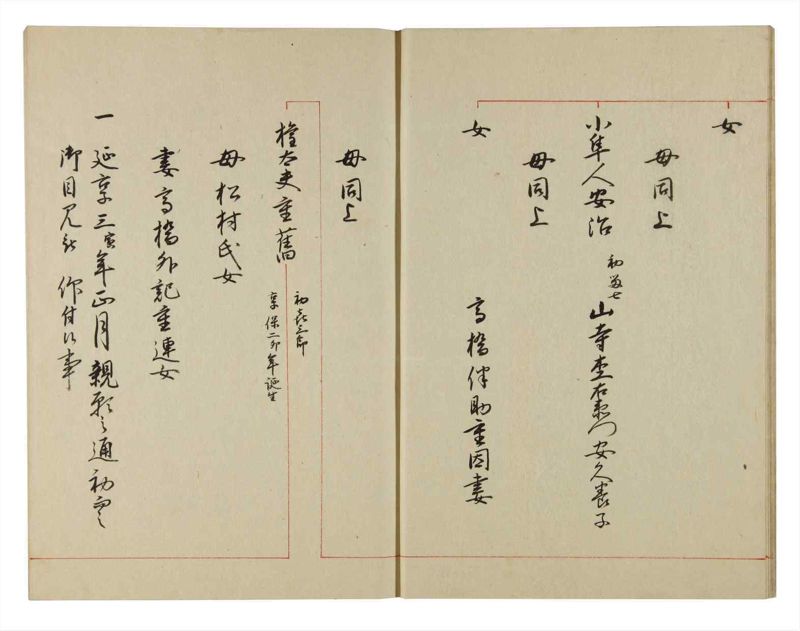 女
母同上
小隼人安治 初 七 山寺 右衛門安久養子
母同上
女 高橋伴助重固妻
母同上
権太夫重舊 初 三郎 享保二卯年誕生
母松村氏女
妻高橋外記重連女
一延享三寅年正月親願之通初而之
御目見被 仰付候事